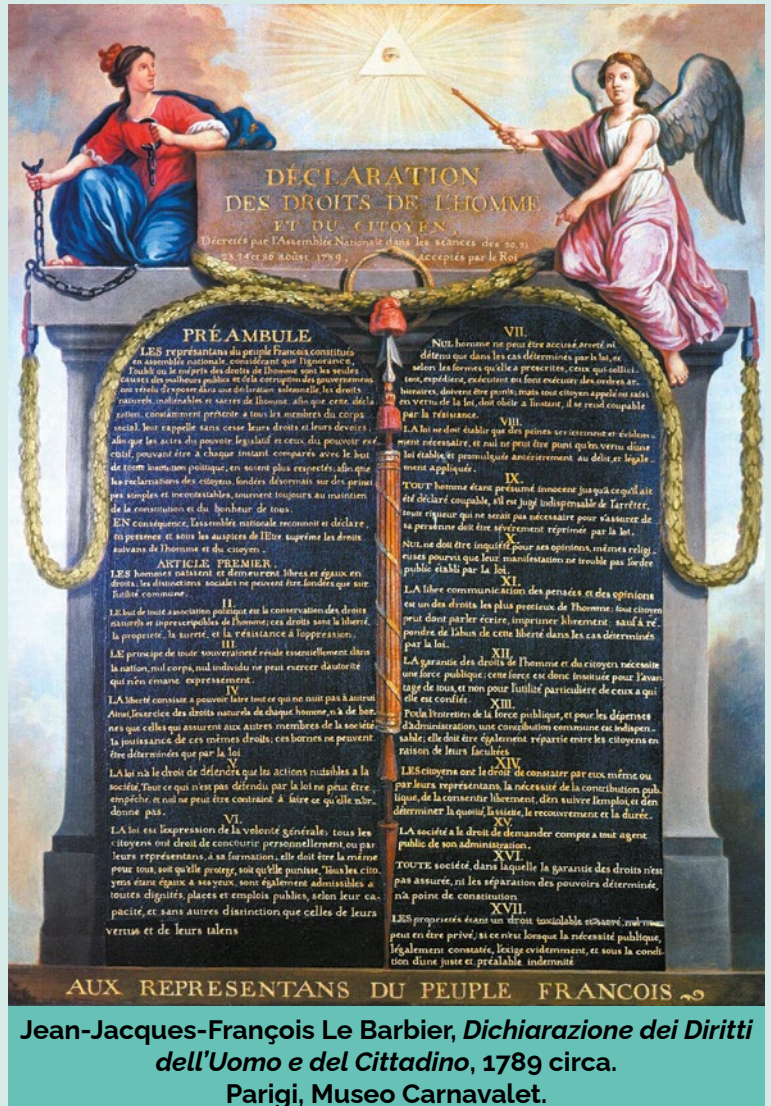 DÉCLARATION
DES DROITS DE L'HOMME
ET DU CITOYEN,
Décretés par l'Assemblée Nationale dans les séances des 20. 21
23. 24 et 26 août 1789, acceptés par le Roi
PRÉAMBULE
LES représentans du peuple François, constitués
en assemblée nationale, considérant que l'ignorance,
l'oubli ou le mépris des droits de l'homme sont les seules
causes des malheurs publics et de la corruption des gouvernemens
ont résolu d'exposer dans une déclaration solemnelle, les droits
naturels, inaliénables et sacrés de l'homme: afin que cette décla
ration, constamment présente a tous les membres du corps
social, leur rappelle sans cesse leurs droits et leurs devoirs;
afin que les actes du pouvoir législatif et ceux du pouvoir exé
cutif, pouvant être à chaque instant comparés avec le but
de toute institution politique, en soient plus respectés; afin que
les réclamations des citoyens, fondées désormais sur des principes
simples et incontestables, tournent toujours au maintien
de la constitution et du bonheur de tous.
EN conséquence, l'assemblée nationale reconnoit et déclare,
en présence et sous les auspices de l'Etre suprême les droits
suivans de l'homme et du citoyen.
ARTICLE PREMIER.
LES hommes naissent et demeurent libres et égaux en
droits, les distinctions sociales ne peuvent être fondées que sur
l'utilité commune.
II.
LE but de toute association politique est la conservation des droits
naturels et inprescriptibles de l'homme; ces droits sont la liberté,
la propriété, la sureté, et la résistance à l'oppression.
III.
LE principe de toute souveraineté réside essentiellement dans
la nation, nul corps, nul individu ne peut exercer d'autorité
qui n'en émane expressement.
IV
LA liberté consiste a pouvoir faire tout ce qui ne nuit pas à autrui
Ainsi, l'exercice des droits naturels de chaque homme, n'a de bor-
nes que celles qui assurent aux autres membres de la société
la jouissance de ces mêmes droits; ces bornes ne peuvent
être déterminées que par la loi
V.
LA loi n'a le droit de défendre que les actions nuisibles a la
société. Tout ce qui n'est pas défendu par la loi ne peut être
empêché, et nul ne peut être contraint à faire ce qu'elle n'or-
donne pas.
VI.
LA loi est l'expression de la volonté générale; tous les
citoyens ont droit de concourir personnellement, ou par
leurs représentans, à sa formation; elle doit être la même
pour tous, soit qu'elle protege, soit qu'elle punisse, Tous les cito
yens étant égaux à ses yeux, sont également admissibles a
toutes dignités, places et emplois publics, selon leur ca-
pacité, et sans autres distinction que celles de leurs
vertus et de leurs talens
VII.
NUL homme ne peut être accusé, arreté ni
détenu que dans les cas déterminés par la loi, et
selon les formes qu'elle a prescrites, ceux qui sollici-
tent, expédient, exécutent ou font exécuter des ordres ar-
bitraires, doivent être punis; mais tout citoyen appelé ou saisi
en vertu de la loi, doit obéir a l'instant, il se rend coupable
par la résistance.
VIII.
LA loi ne doit établir que des peines strictement et évidem-
ment nécessaire, et nul ne peut être puni qu'en vertu d'une
loi établie et promulguée antérierement au délit, et légale-
ment appliquée.
IX.
TOUT homme étant présumé innocent jusqu'à ce qu'il ait
été déclaré coupable, s'il est jugé indispensable de l'arrêter,
toute rigueur qui ne serait pas nécessaire pour s'assurer de
sa personne doit être sévèrement réprimée par la loi.
X.
NUL ne doit être inquiété pour ses opinions, mêmes religi-
euses pourvu que leur manifestation ne trouble pas l'ordre
public établi par la loi.
XI.
LA libre communication des pensées et des opinions
est un des droits les plus precieux de l'homme; tout citoyen
peut dont parler écrire, imprimer librement: sauf à ré-
pondre de l'abus de cette liberté dans les cas déterminés
par la loi.
XII.
LA garantie des droits de l'homme et du citoyen nécessite
une force publique; cette force est donc instituée pour l'avan
tage de tous, et non pour l'utilité particuliere de ceux a qui
elle est confiée.
XIII.
Pour l'entretien de la force publique, et pour les dépenses
d'administration, une contribution commune est indispen-
sable; elle doit être également répartie entre les citoyens en
raison de leurs facultées
XIV.
LES citoyens ont le droit de constater par eux même ou
par leurs représentans, la nécessité de la contribution pub-
lique, de la consentir librement, d'en suivre l'emploi, et d'en
déterminer la quotité, l'assiette, le recouvrement et la durée.
XV.
LA société a le droit de demander compte a tout agent
public de son administration.
XVI.
TOUTE société, dans laquelle la garantie des droits n'est
pas assurée, ni les séparation des pouvoirs déterminée,
n'a point de constitution
XVII.
LES proprietés étant un droit inviolable et sacré, nul ne
peut en être privé, si ce n'est lorsque la nécessité publique,
légalement constatée, l'exige evidemment, et sous la condi-
tion d'une juste et préalable indemnité
AUX REPRESENTANS DU PEUPLE FRANCOIS
Jean-Jacques-François Le Barbier, Dichiarazione dei Diritti
dell'Uomo e del Cittadino, 1789 circa.
Parigi, Museo Carnavalet.